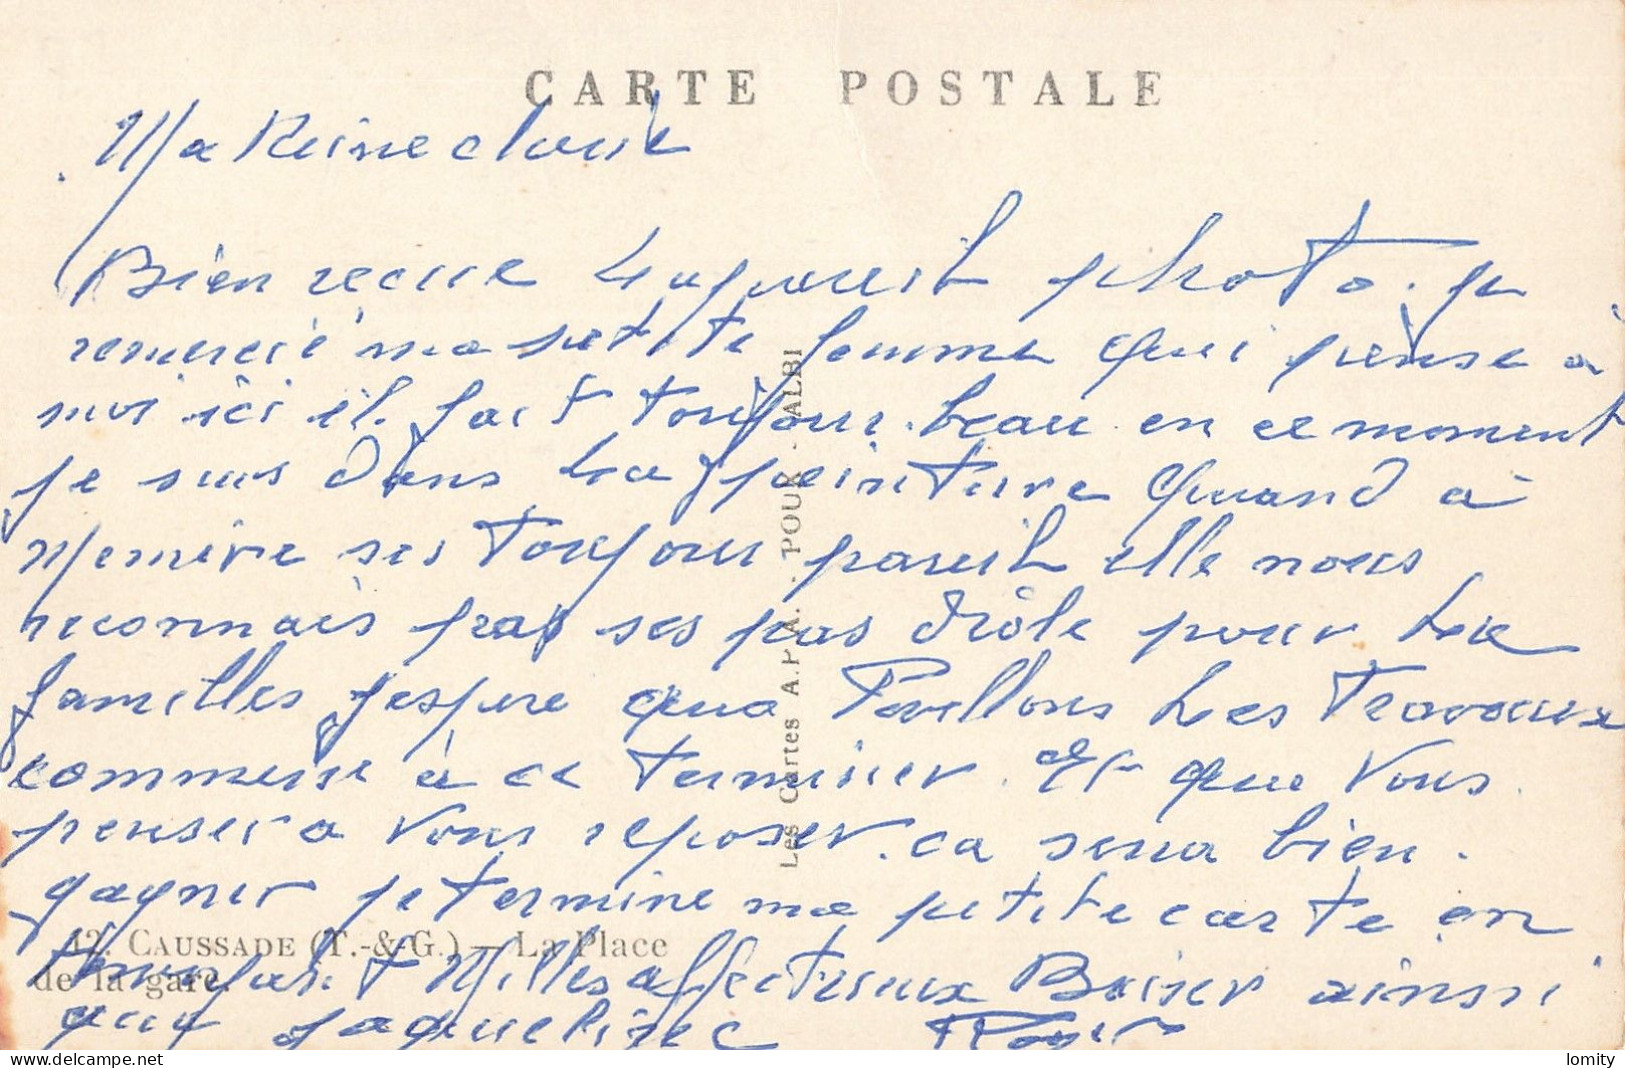 CARTE POSTALE
Ma Reine
Bien recue L'apareil photo. je
remercié ma petite femme qui pense à
moi ici il fait toujour beau en ce moment
je suis dans La peinture quand à
Memère ses toujour pareil elle nous
reconnais pas ses pas drôle pour Les
familles j'espere que Les Travaux
commense à ce terminer. Et que vous
penser a vous reposer. ca sera bien
gagner je termine ma petite carte en
Milles affectueux Baiser ainsi
que Jaqueline Roger
Les Cartes A.P.A. - POUX - ALBI
42. CAUSSADE (T.-&-G.) — La Place
de la gare.
lomity
delcampe.net